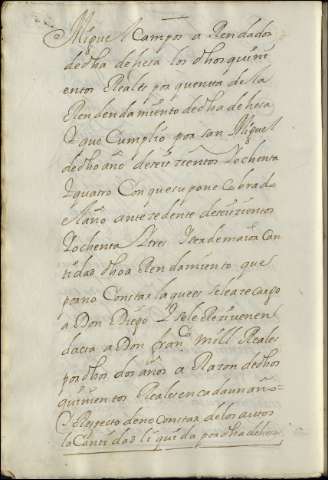 Miguel Campos a Rendador
de dha dehesa los dhos quini
entos Reales por quenta de la
Rendamiento de dha dehesa
que Cumplio por san Miguel
de dho año de seiszientos y ochenta
y quatro Con que supone Cobrado
el año antezedente de seiszientos
y ochenta y tres y era de maior can
tidad dho a Rendamiento que
para no Constar la que es se le a Cargo
a Don Diego y se le Reziven en
dacta a Don Fran.co mill Reales
por dhos dos años a Razon de dhos
quinientos Reales en cada un año
y Respecto de no Constar de los autos
la Cantidad liquida por dha dehesa